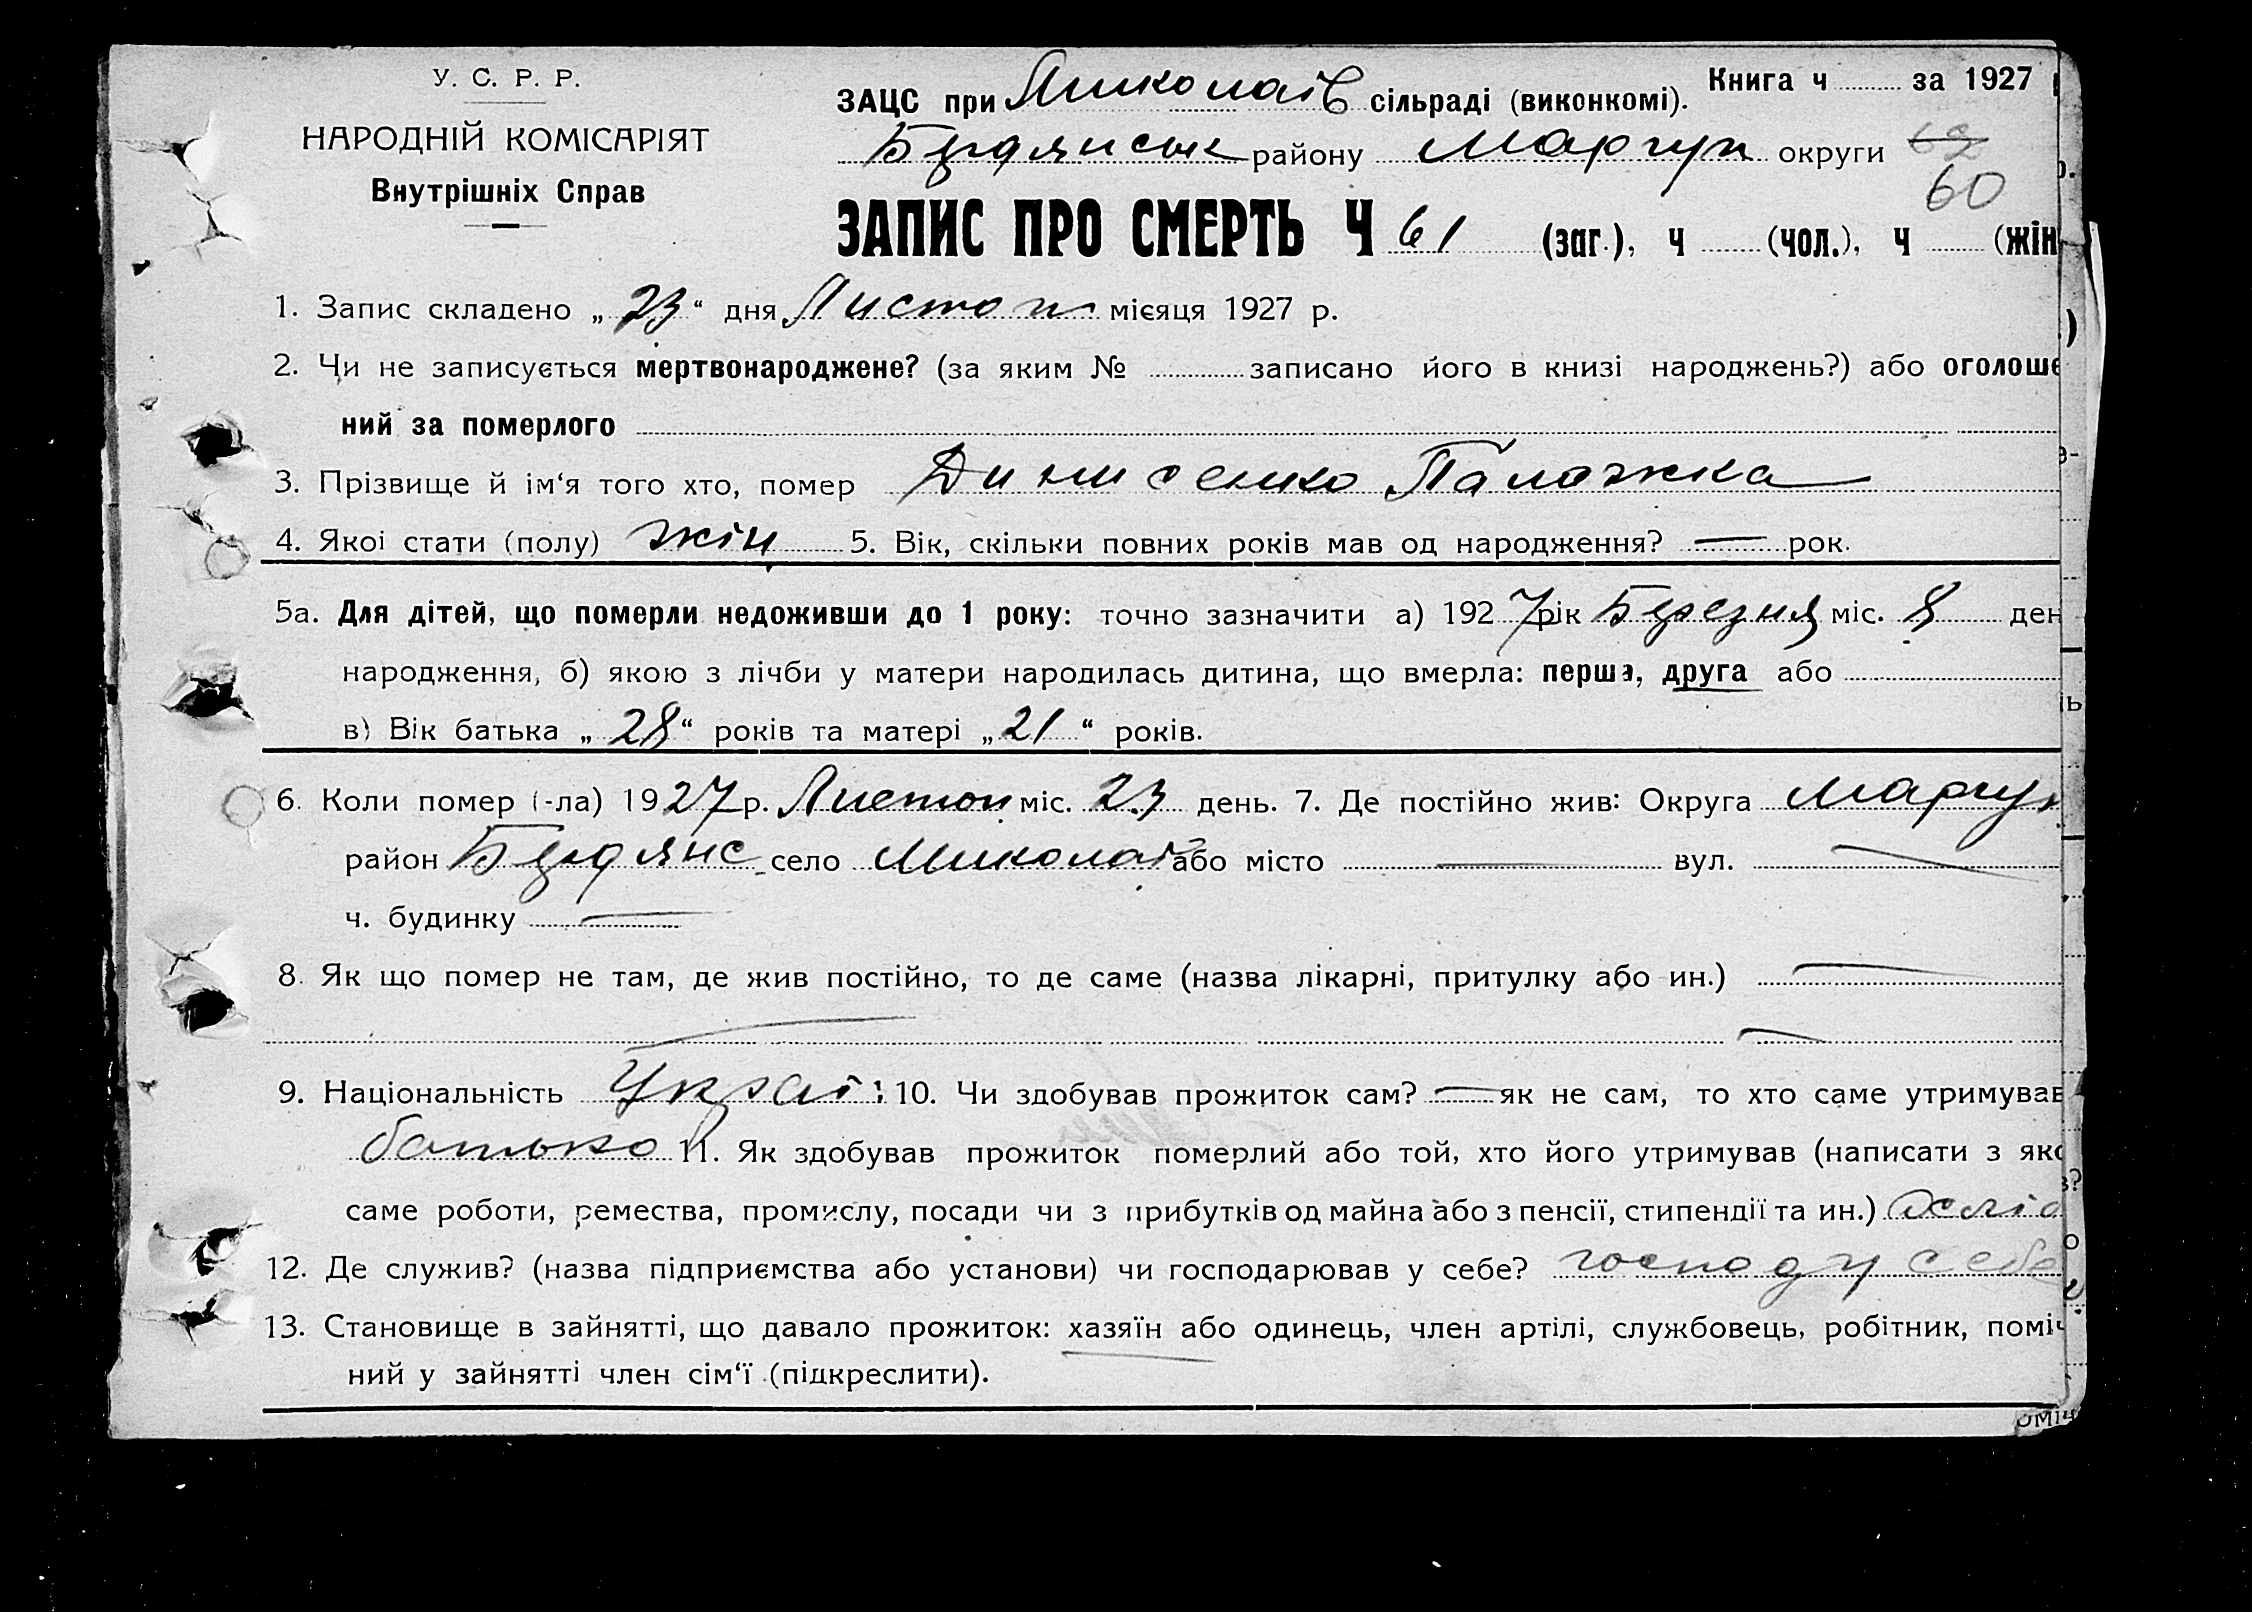 У. С. Р. Р.
НАРОДНІЙ КОМІСАРІЯТ
Внутрішніх Справ
Книга ч за 1927
ЗАЦС при Миколаїв сільраді (виконкомі).
Бердянськ району Маріуп округи 62
60
ЗАПИС ПРО СМЕРТЬ Ч 61 (заг.), ч (чол.), ч (жін
1. Запис складено „ 23 “ дня Листоп місяця 1927 р.
2. Чи не записується мертвонароджене? (за яким № записано його в книзі народжень?) або оголоше
ний за померлого
3. Прізвище й ім‘я того хто, помер Динисенко Палажка
4. Якоі стати (полу) жін 5. Вік, скільки повних років мав од народження? — рок.
5а. Для дітей, що померли недоживши до 1 року: точно зазначити а) 1927 рік Березня міс. 8 ден
народження, б) якою з лічби у матери народилась дитина, що вмерла: перша, друга або
в) Вік батька „ 28 “ років та матері „ 21 “ років.
6. Коли помер (-ла) 1927 р. Листоп міс. 23 день. 7. Де постійно жив: Округа Маріуп
район Бердянс село Миколаї або місто — вул. —
ч. будинку —
8. Як що помер не там, де жив постійно, то де саме (назва лікарні, притулку або ин.) —
9. Національність Украї 10. Чи здобував прожиток сам? — як не сам, то хто саме утримував
батько 11. Як здобував прожиток померлий або той, хто його утримував (написати з яко
саме роботи, ремества, промислу, посади чи з прибутків од майна або з пенсії, стипендії та ин.)
12. Де служив? (назва підприємства або установи) чи господарював у себе? господ у себе
13. Становище в зайнятті, що давало прожиток: хазяїн або одинець, член артілі, службовець, робітник, поміч
ний у зайнятті член сім‘ї (підкреслити).
оміч